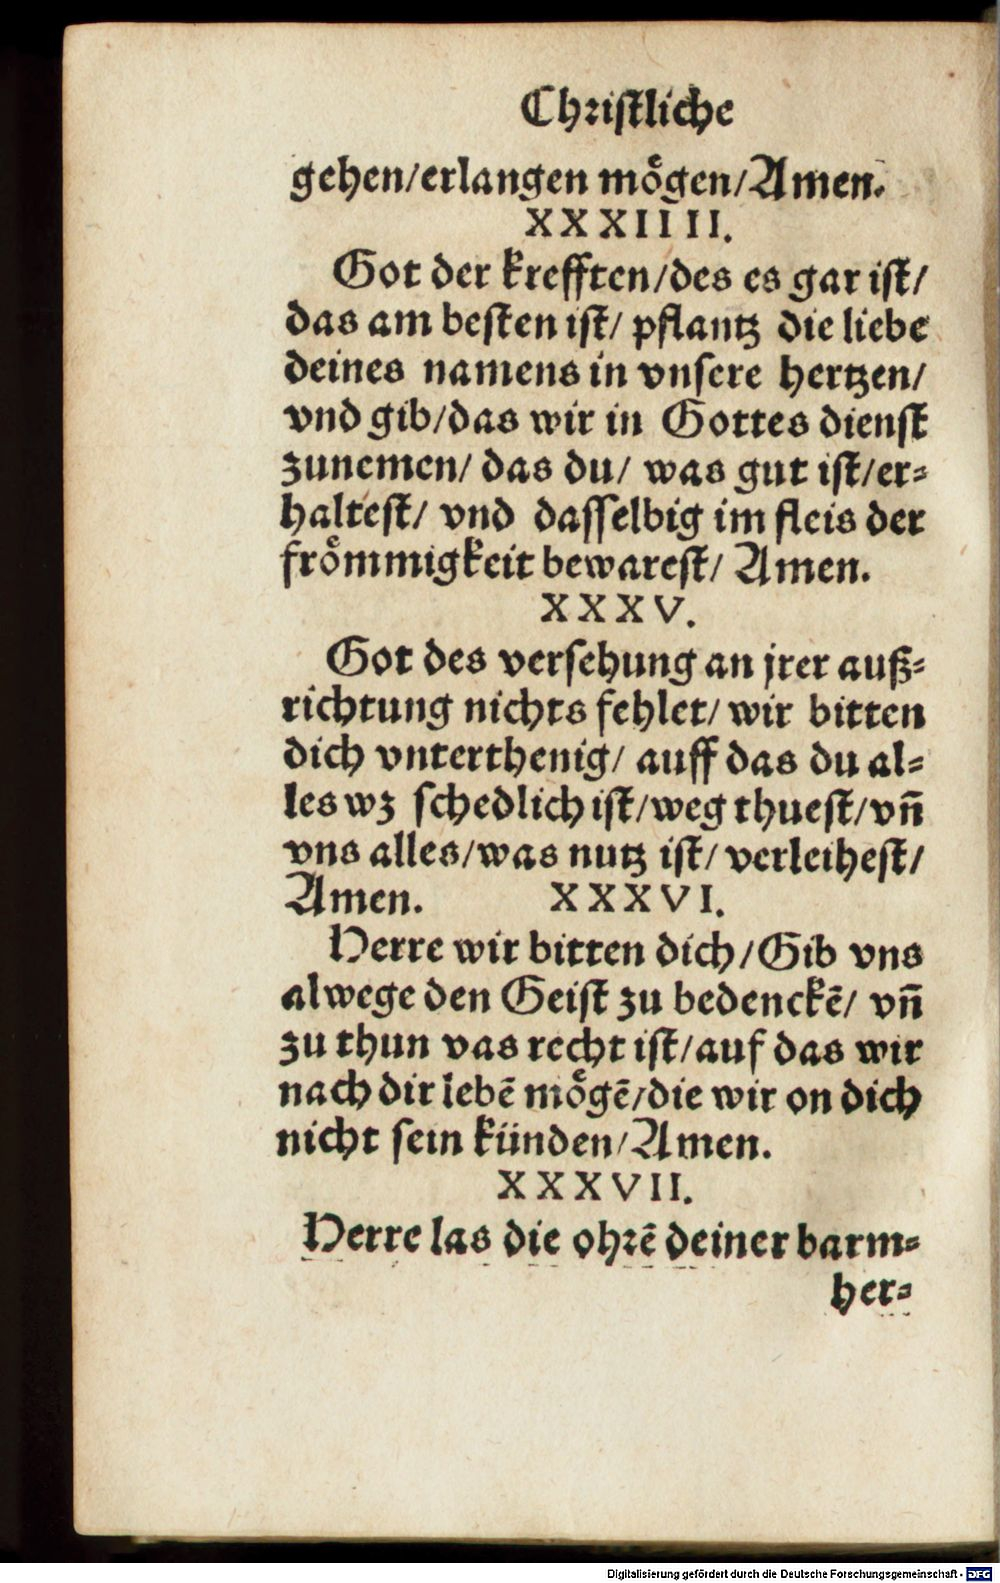 Christliche
gehen/erlangen moͤgen/Amen.
XXXIIII.
Got der krefften/des es gar ist/
das am besten ist/ pflantz die liebe
deines namens in vnsere hertzen/
vnd gib/das wir in Gottes dienst
zunemen/ das du/ was gut ist/er-
haltest/ vnd dasselbig im fleis der
froͤmmigkeit bewarest/ Amen.
XXXV.
Got des versehung an jrer auß-
richtung nichts fehlet/ wir bitten
dich vnterthenig/ auff das du al-
les wz schedlich ist/weg thuest/vñ
vns alles/was nutz ist/ verleihest/
Amen. XXXVI.
Herre wir bitten dich/Gib vns
alwege den Geist zu bedenckẽ/ vñ
zu thun vas recht ist/auf das wir
nach dir lebẽ moͤgẽ/die wir on dich
nicht sein künden/Amen.
XXXVII.
Herre las die ohrẽ deiner barm-
her-
Digitalisierung gefördert durch die Deutsche Forschungsgemeinschaft - DFG